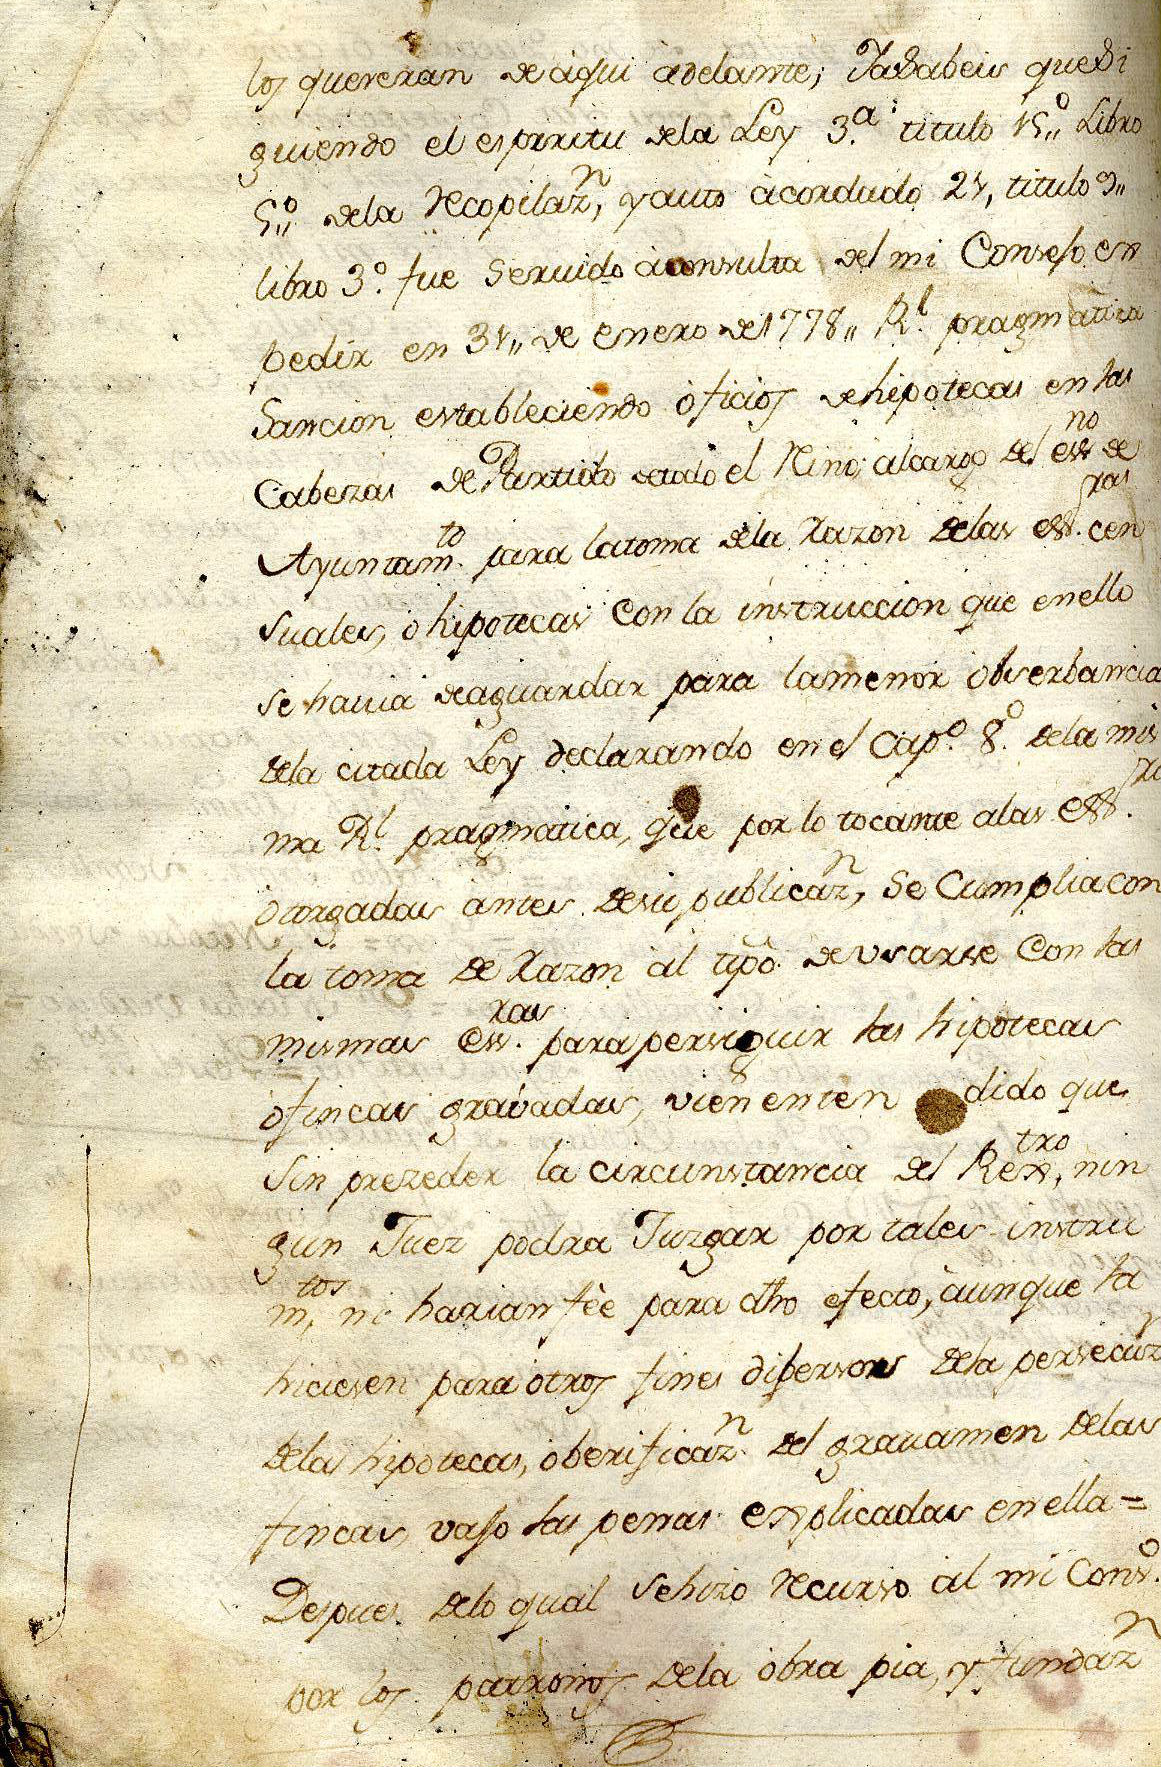 los quereran de aqui adelante; Ya Sabeis que Si
guiendo el espiritu dela Ley 3.ª titulo 15,,º Libro
5,,º dela Recopilaz.n, y auto acordado 21, titulo 9,,
libro 3.º fue Servido à consulta del mi Consejo ex
pedir en 31,, de enero de 1778,, R.l pragmatica
Sancion estableciendo oficios de hipotecas en las
Cabezas de Partido de todo el Reino, al cargo del ess.no de
Ayuntam.to para la toma dela Razon delas ess.ras cen
suales, o hipotecas Con la instruccion que en ello
se havia de aguardar para la menor obserbancia
dela citada Ley declarando en el Cap.º 8.º dela mis
ma R.l pragmatica, que por lo tocante alas ess.ras
otorgadas antes de su publicaz.n, Se Cumplia con
la toma de Razon al tpô. de usarse Con las
mismas ess.ras para perseguir las hipotecas
ofincas gravadas, vien enten dido que
Sin prezeder la circunstancia del Rex.tro, nin
gun Juez podra Juzgar por tales instru
m.tos, ni harian fèe para dho efecto, aunque la
hiciesen para otros fines dibersos dela persecuz.n
delas hipotecas, o berificaz.n del gravamen delas
fincas, vajo las penas explicadas en ella =
Despues delo qual Se hizo Recurso al mi Cons.º
por los patronos dela obra pia, y fundaz.n